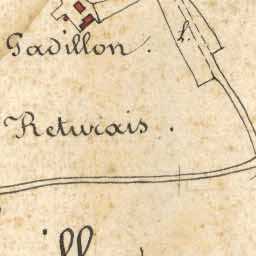 Gadillon.
Returais.